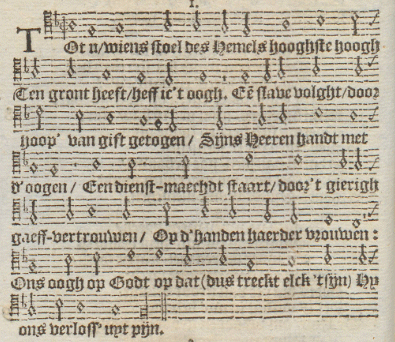 1.
TOt u/wiens stoel des Hemels hooghste hoogh
Ten gront heeft/heff ic't oogh. Eẽ slave volght/door
hoop' van gift getogen / Sijns Heeren handt met
d'oogen / Een dienst-maechdt staart/door't gierigh
gaeff-vertrouwen / Op d'handen haerder vrouwen :
Ons oogh op Godt op dat (dus treckt elck 'tsijn) Hy
ons verloss' uyt pijn.